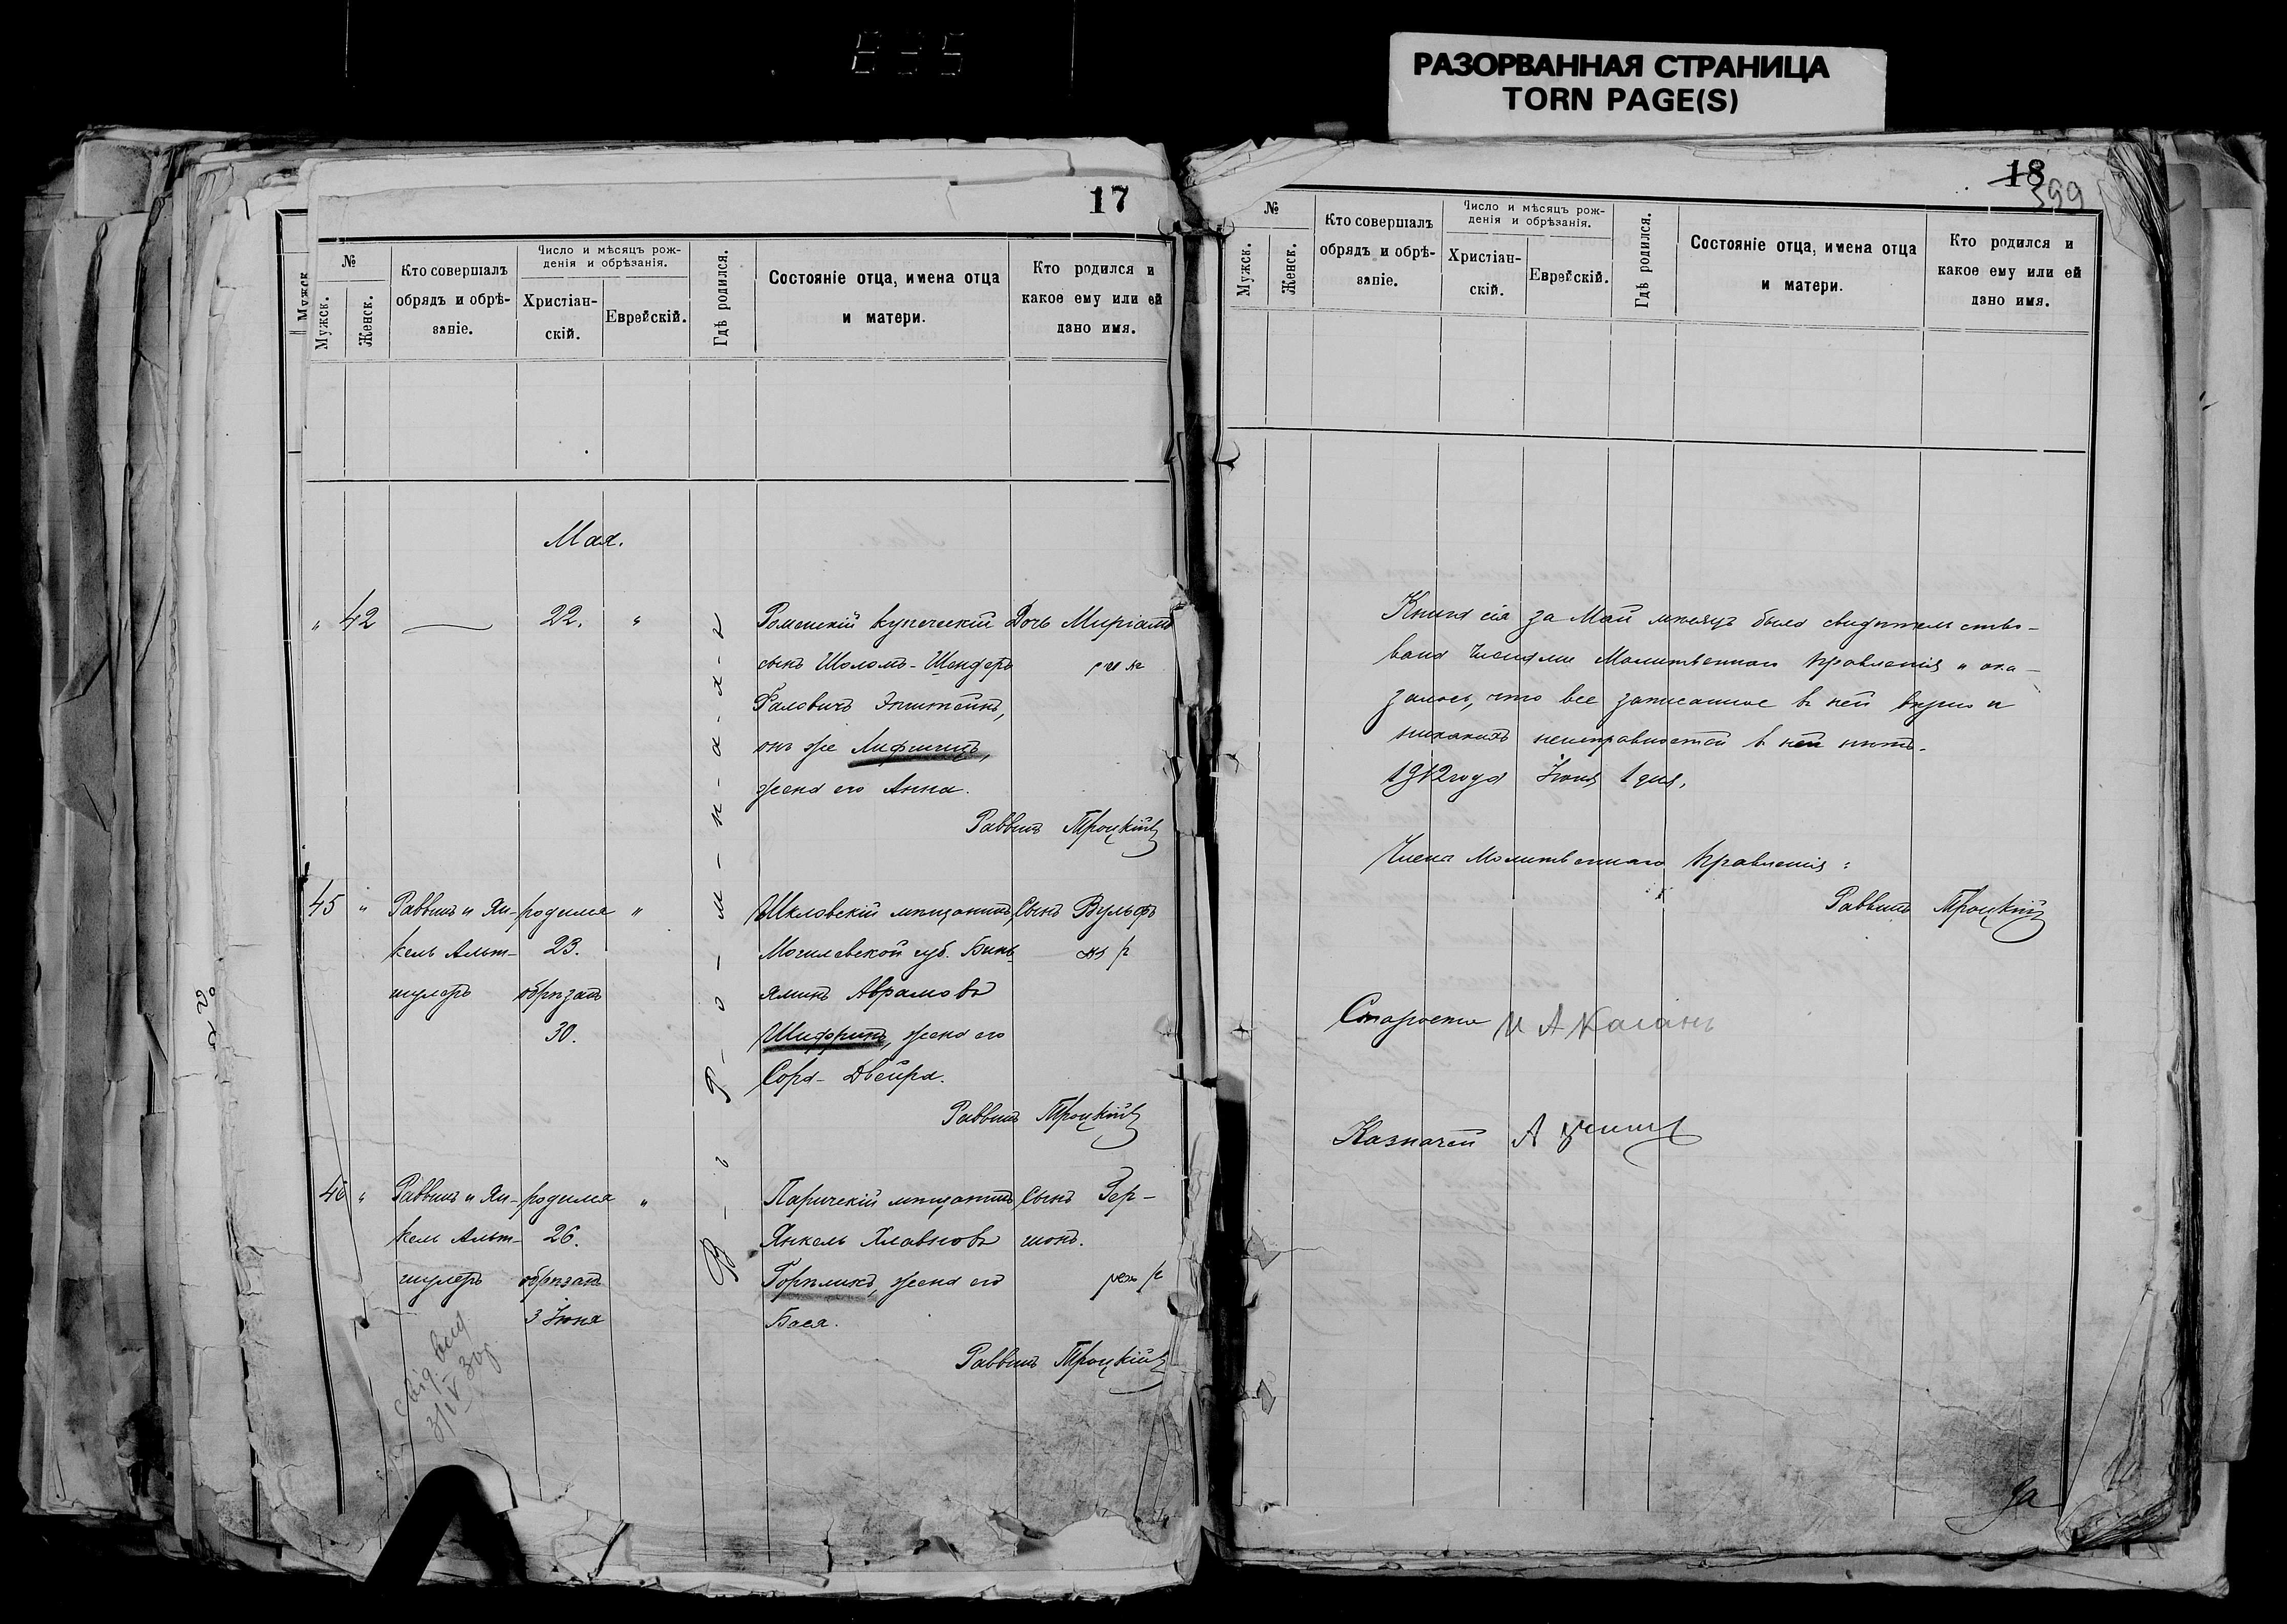 835
РАЗОРВАННАЯ СТРАНИЦА
TORN PAGE(S)
17
№
Мужск.
Женск.
Кто совершалъ
обрядъ и обрѣ-
заніе.
Число и мѣсяцъ рож-
денія и обрѣзанія.
Христіан-
скій.
Еврейскій.
Гдѣ родился.
Состояніе отца, имена отца
и матери.
Кто родился и
какое ему или ей
дано имя.
Мая.
" 42 — 22. "
Роменскій купеческій
сынъ Шоломъ-Шендеръ
Фаловичъ Эпштейнъ,
онъ же Лифшицъ,
жена его Анна.
Дочь Миріамъ
Раввинъ Троцкій
Въ Ромнахъ
45 "
Раввинъ и Ян-
кель Альт-
шулеръ
родился
23.
обрѣзанъ
30.
"
Шкловскій мѣщанинъ,
Могилевской губ. Бинь-
яминъ Аврамовъ
Шифринъ, жена его
Сора-Двейра.
Сынъ Вульфъ
Раввинъ Троцкій
46 "
Раввинъ и Ян-
кель Альт-
шулеръ
родился
26.
обрѣзанъ
3 Іюня
"
Паричскій мѣщанинъ
Янкель Хлавновъ
Горѣликъ, жена его
Бася.
Сынъ Гер-
шонъ.
Раввинъ Троцкій
18
399
№
Мужск.
Женск.
Кто совершалъ
обрядъ и обрѣ-
заніе.
Число и мѣсяцъ рож-
денія и обрѣзанія.
Христіан-
скій.
Еврейскій.
Гдѣ родился.
Состояніе отца, имена отца
и матери.
Кто родился и
какое ему или ей
дано имя.
Книга сія за Май мѣсяцъ была свидѣтельство-
вана Членами Молитвеннаго Правленія и ока-
залось, что все записанное въ ней вѣрно и
никакихъ неисправностей въ ней нѣтъ.
1912 года Іюня 1 дня.
Члены Молитвеннаго Правленія:
Раввинъ Троцкій
Староста И А Каганъ
Казначей А